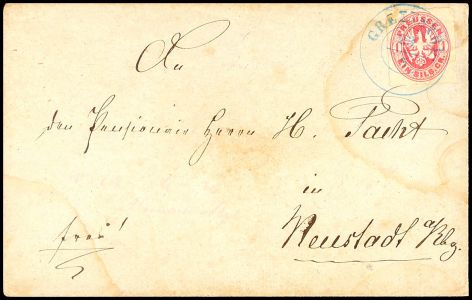 PREUSSEN
EIN SILB. GR.
An
den Pensionair Herrn H.
in
Neustadt a/Rbg.
frei!